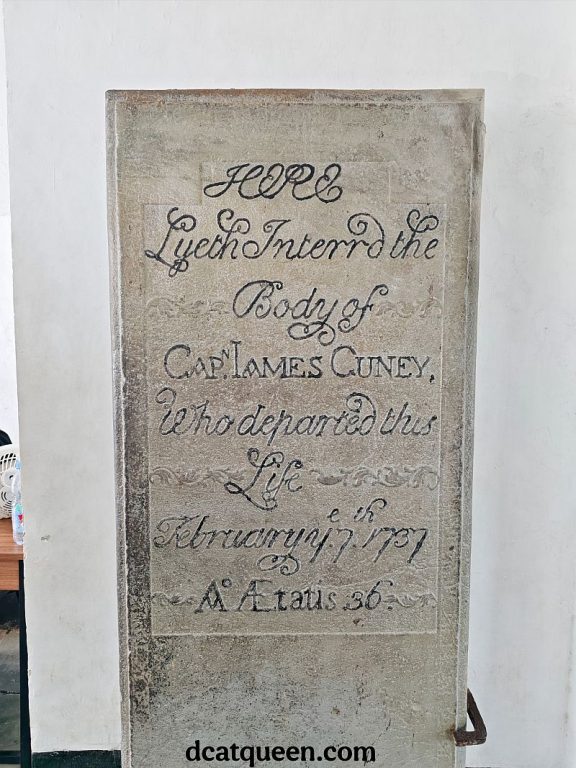 HERE
Lyeth Interr'd the
Body of
CAPᵗ. IAMES CUNEY.
Who departed this
Life
February yᵉ. 7ᵗʰ. 1737
Aº. ÆTatis 36.
dcatqueen.com